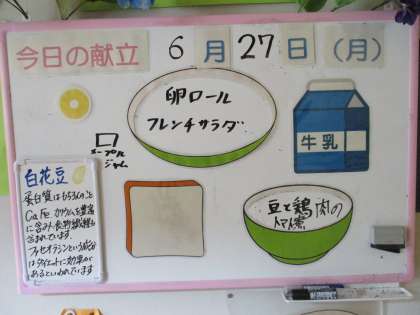 今日の献立 6月27日(月)
卵ロール
フレンチサラダ
メープル
ジャム
牛乳
白花豆
蛋白質はもちろんのこと
Ca Fe カリウムも豊富
に含み、食物繊維も
含まれています。
ファセオラシンという成分
はダイエットに効果が
あるといわれています
豆と鶏肉の
トマト煮